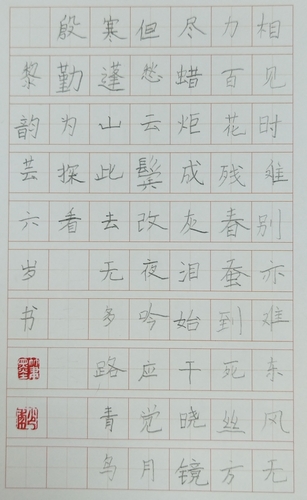 相见时难别亦难东风无
力百花残春蚕到死丝方
尽蜡炬成灰泪始干晓镜
但愁云鬓改夜吟应觉月
寒蓬山此去无多路青鸟
殷勤为探看
黎韵芸六岁书